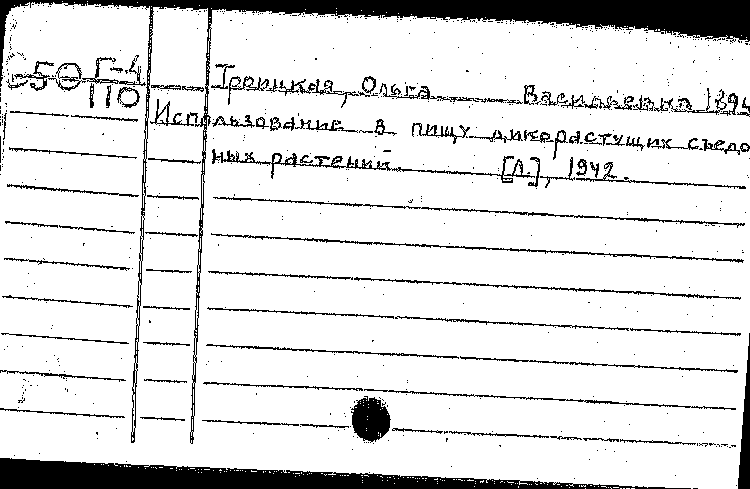 Г-4
50
110
Троицкая, Ольга Васильевна 1894
Использование в пищу дикорастущих съедо
ных растений. [Л.], 1942.